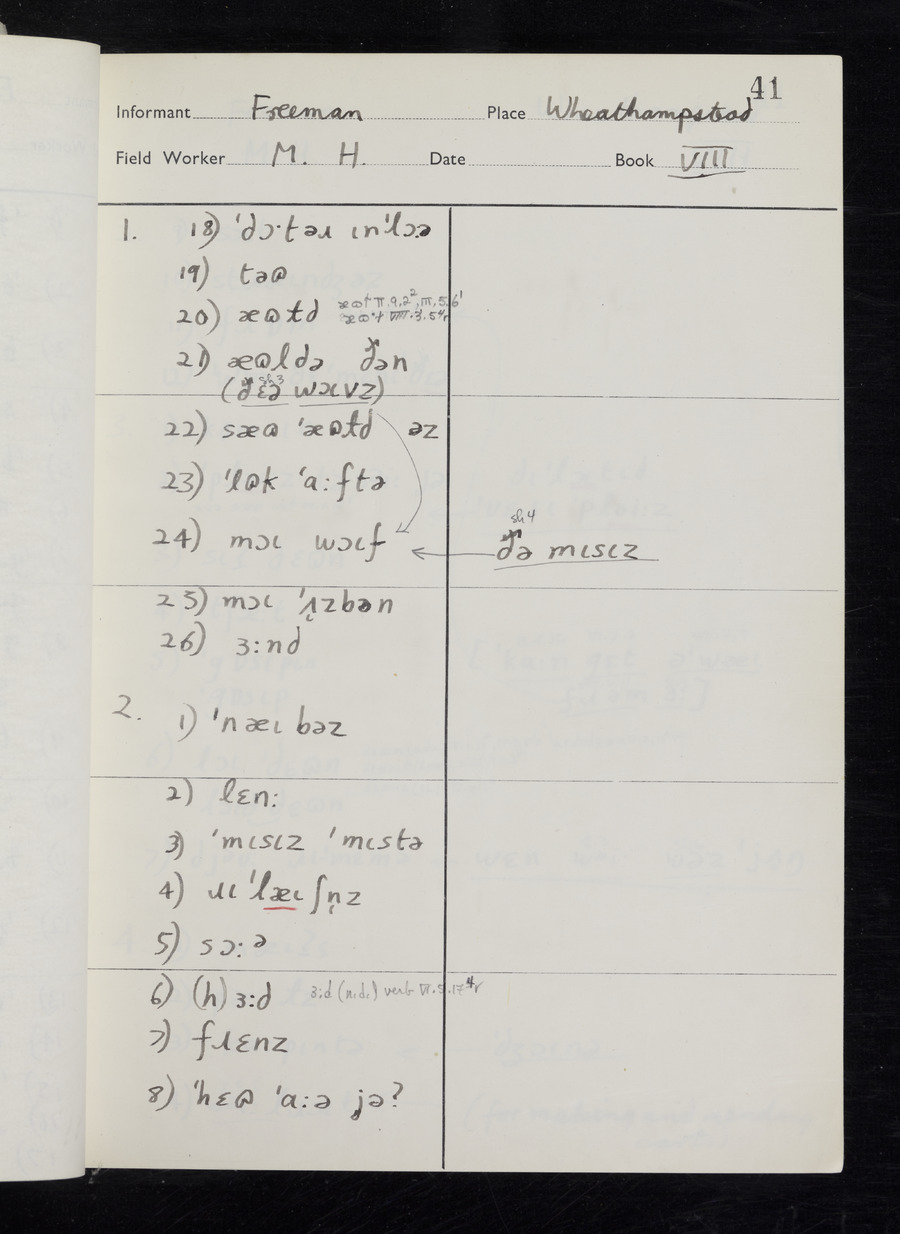 41
Informant Freeman Place Wheathampstead
Field Worker M. H. Date Book VIII
1. 18) ˈdɔ·təɹ ɩnˈlɔə
19) təɷ
20) æɷɫd æɷɫ VI.9.2², III.5.6¹
æɷ·ɫ VIII.3.5⁴r
21) æɷldə ðən
(ðɛə wɔɩvz) sh 3
22) sæɷ ˈæɷɫd əz
23) ˈlɷk ˈa:ftə
24) mɔɩ wɔɩf
sh 4
ðə mɩsɩz
25) mɔɩ ˈʌ̩zbən
26) ɜ:nd
2. 1) ˈnæɩ bəz
2) lɛn:
3) ˈmɩsɩz ˈmɩstə
4) ɹɩˈlæɩʃn̩z
5) sɔ:ə
6) (h)ɜ:d ɜ:d (n.d.) verb VI.5.17⁴r
7) fɹɛnz
8) ˈhɛɷ ˈa:ə jə?